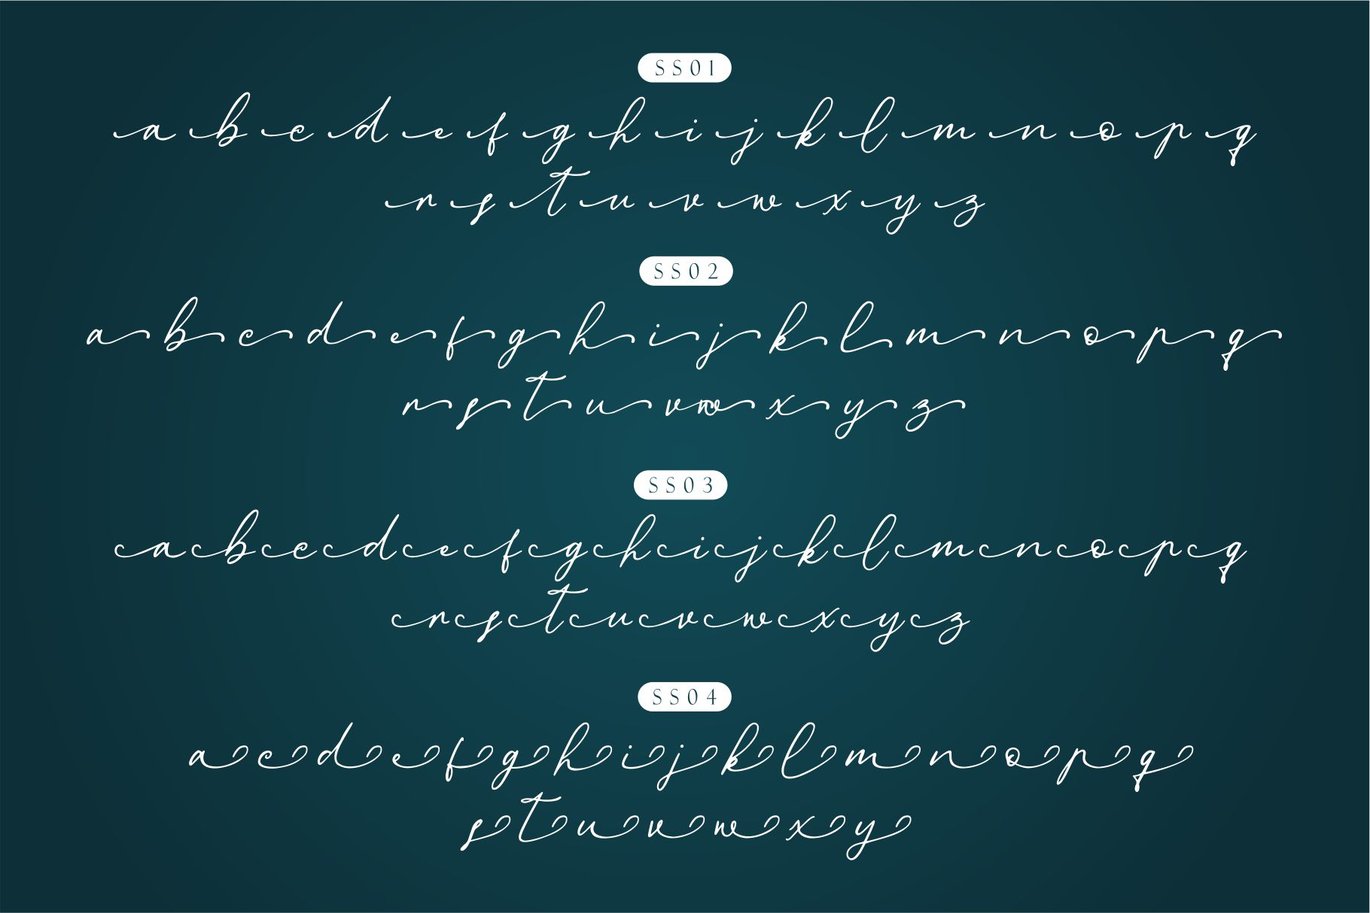 SS01
a b c d e f g h i j k l m n o p q
r s t u v w x y z
SS02
a b c d e f g h i j k l m n o p q
r s t u v w x y z
SS03
a b c d e f g h i j k l m n o p q
r s t u v w x y z
SS04
a c d e f g h i j k l m n o p q
s t u v w x y